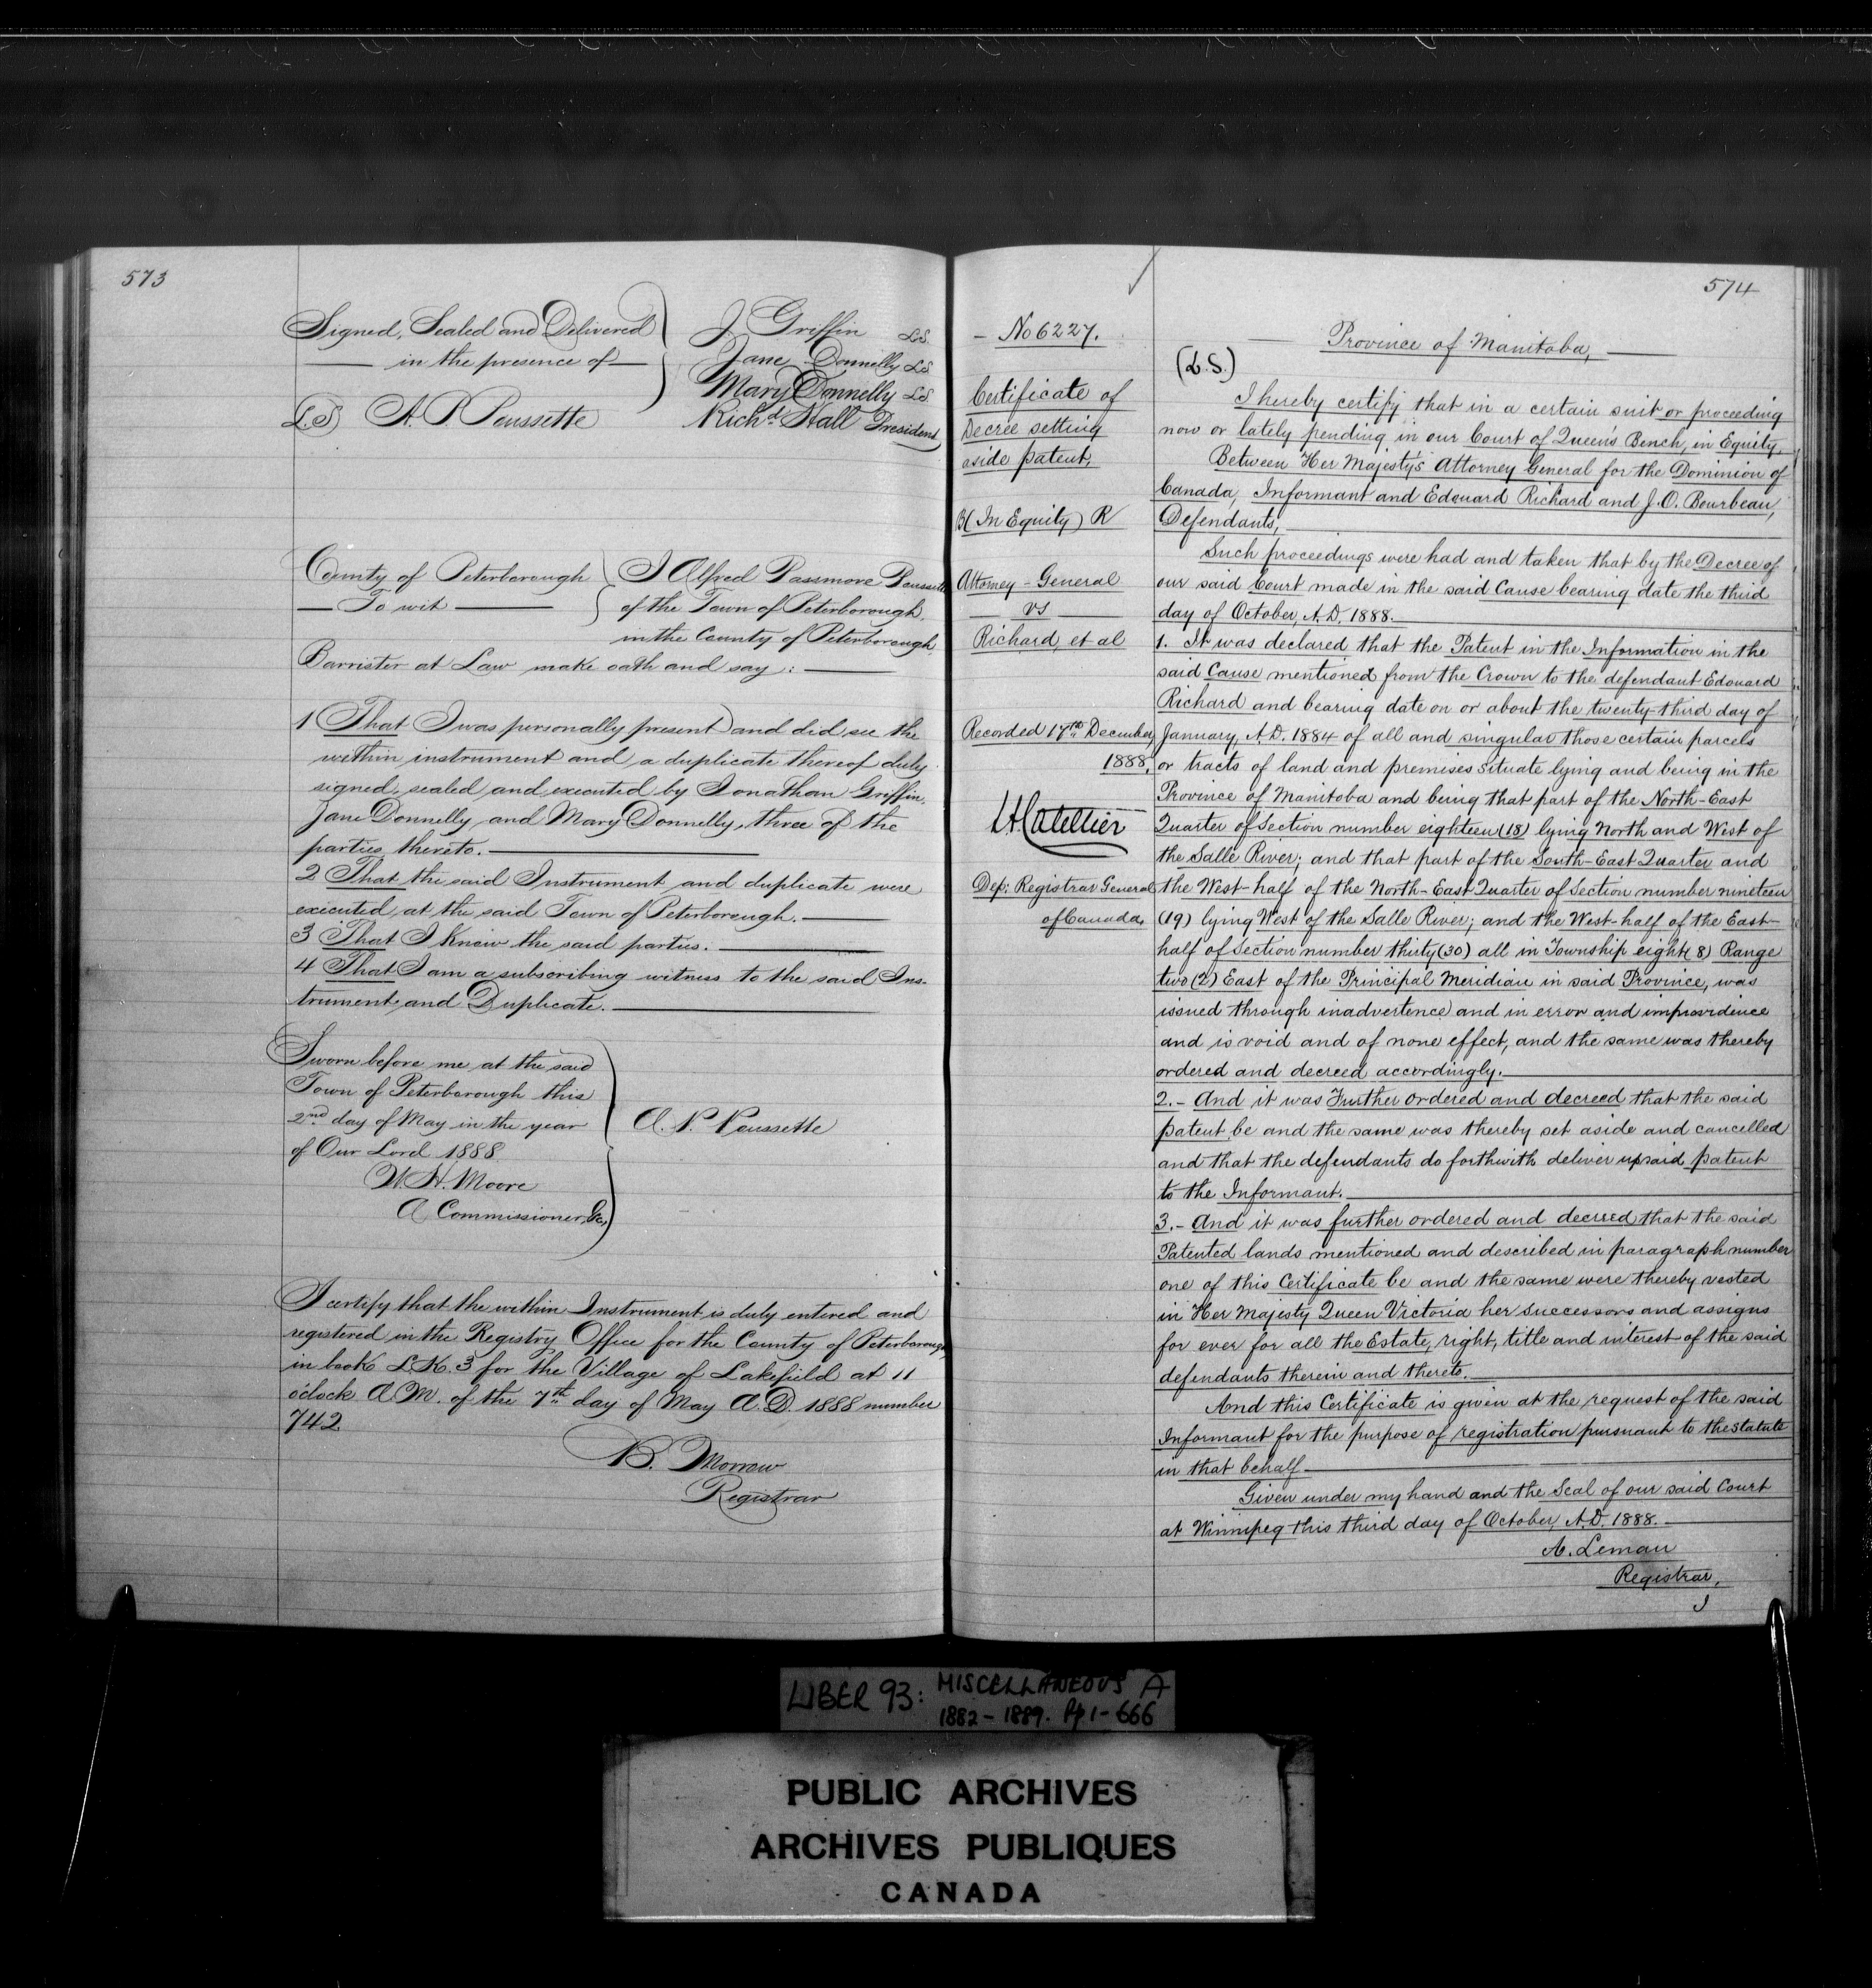 573
Signed, Sealed and Delivered
in the presence of
L.S. A. P. Poussette
J. Griffin L.S.
Jane Donnelly L.S.
Mary Donnelly L.S.
Richd Hall President
County of Peterborough
To wit
I Alfred Passmore Poussette
of the Town of Peterborough
in the County of Peterborough
Barrister at Law make oath and say:
1 That I was personally present and did see the
within instrument and a duplicate thereof duly
signed, sealed and executed by Jonathan Griffin,
Jane Donnelly and Mary Donnelly, three of the
parties thereto.
2 That the said Instrument and duplicate were
executed at the said Town of Peterborough.
3 That I know the said parties.
4 That I am a subscribing witness to the said Ins-
trument and Duplicate.
Sworn before me at the said
Town of Peterborough this
2nd day of May in the year
of Our Lord 1888
W. H. Moore
A Commissioner, &c,
A. P. Poussette
I certify that the within Instrument is duly entered and
registered in the Registry Office for the County of Peterborough
in book L.K. 3 for the Village of Lakefield at 11
o'clock A.M. of the 7th day of May A.D. 1888 number
742
B. Morrow
Registrar
No 6227.
Certificate of
Decree setting
aside patent,
B( In Equity) R
Attorney-General
vs
Richard, et al
Recorded 17th December
1888,
L A Catellier
Dep: Registrar General
of Canada,
574
Province of Manitoba,
(L.S.)
I hereby certify that in a certain suit or proceeding
now or lately pending in our Court of Queen's Bench, in Equity,
Between Her Majesty's Attorney General for the Dominion of
Canada, Informant and Edouard Richard and J.O. Bourbeau,
Defendants,
Such proceedings were had and taken that by the Decree of
our said Court made in the said Cause bearing date the third
day of October, A.D. 1888.
1. It was declared that the Patent in the Information in the
said Cause mentioned from the Crown to the defendant Edouard
Richard and bearing date on or about the twenty-third day of
January, A.D. 1884 of all and singular those certain parcels
or tracts of land and premises situate lying and being in the
Province of Manitoba and being that part of the North-East
Quarter of Section number eighteen (18) lying North and West of
the Salle River; and that part of the South-East Quarter and
the West-half of the North-East Quarter of Section number nineteen
(19) lying West of the Salle River; and the West-half of the East-
half of Section number thirty (30) all in Township eight (8) Range
two (2) East of the Principal Meridian in said Province, was
issued through inadvertence and in error and improvidence
and is void and of none effect, and the same was thereby
ordered and decreed accordingly.
2.- And it was Further ordered and decreed that the said
patent be and the same was thereby set aside and cancelled
and that the defendants do forthwith deliver up said patent
to the Informant.
3.- And it was further ordered and decreed that the said
Patented lands mentioned and described in paragraph number
one of this Certificate be and the same were thereby vested
in Her Majesty Queen Victoria her successors and assigns
for ever for all the Estate, right, title and interest of the said
defendants therein and thereto.
And this Certificate is given at the request of the said
Informant for the purpose of registration pursuant to the statute
in that behalf
Given under my hand and the Seal of our said Court
at Winnipeg this third day of October, A.D. 1888.
A. Leman
Registrar,
LIBER 93: MISCELLANEOUS A
1882-1889. Pp 1-666
PUBLIC ARCHIVES
ARCHIVES PUBLIQUES
CANADA